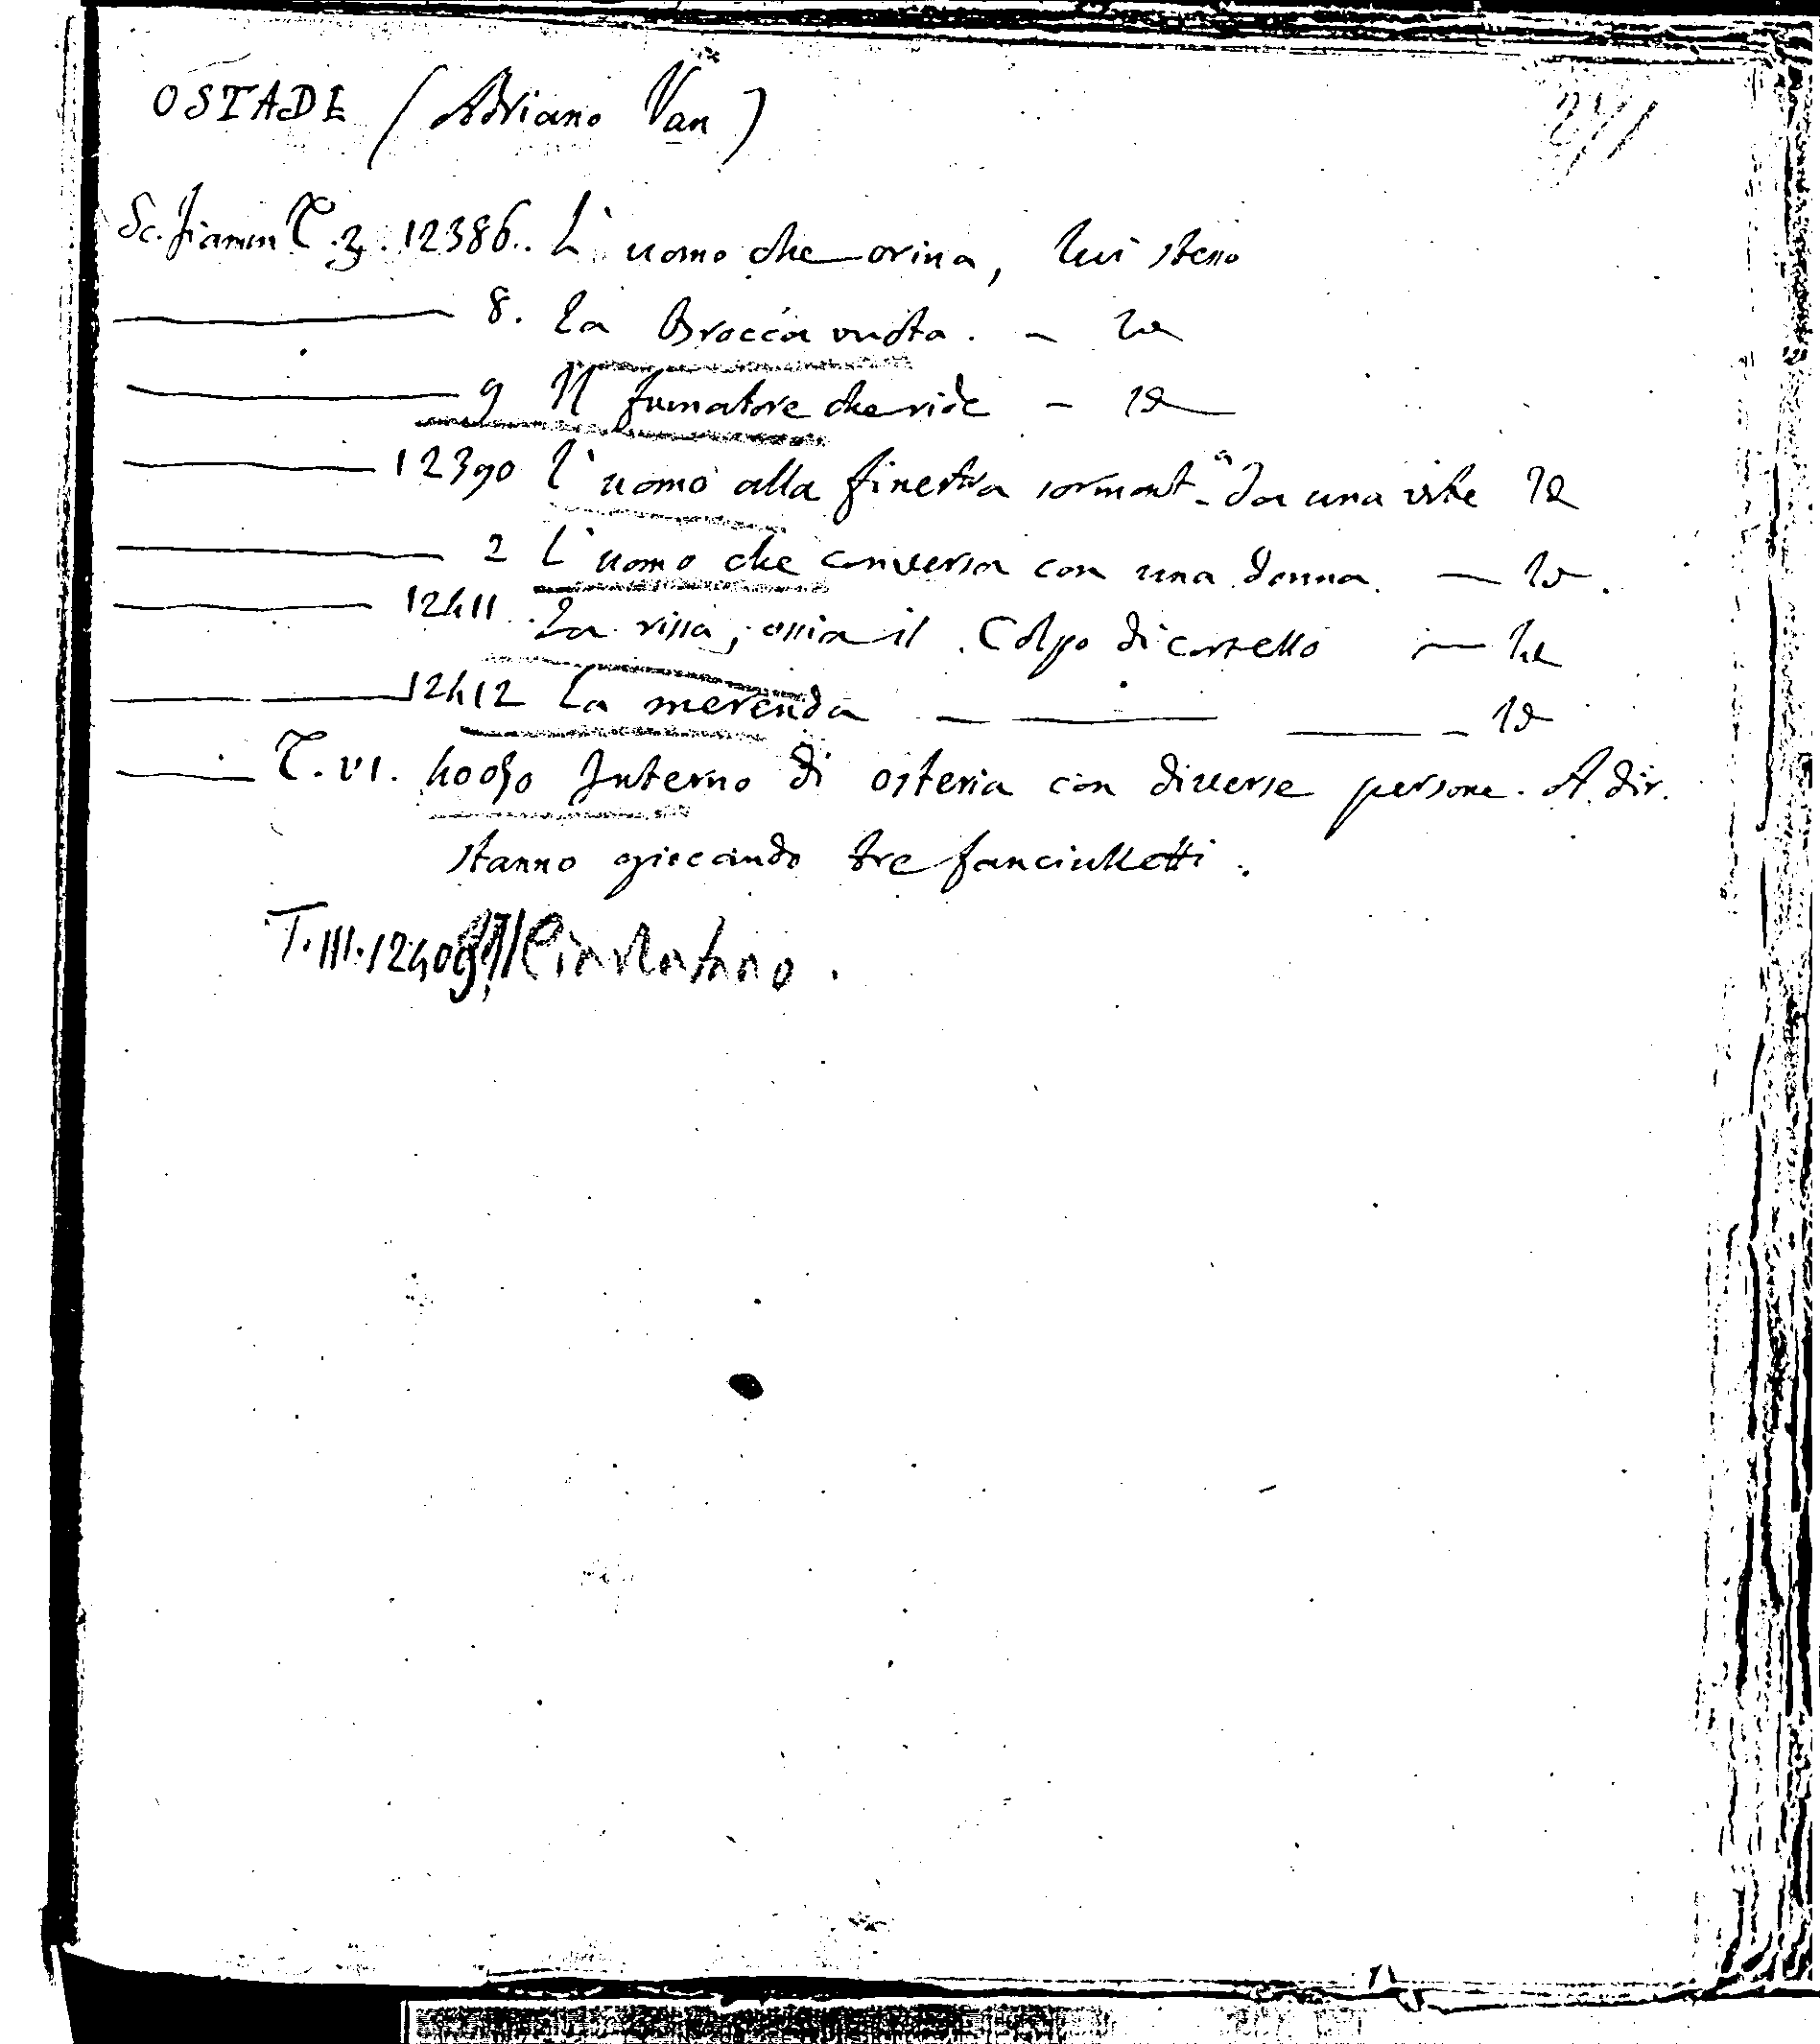 OSTADE (Adriano Van)
241
Sc. fiamm T. 3. 12386.. L'uomo che orina, lui stesso
8. La Brocca vuota. - Id
9 Il fumatore che ride - Id
12390 L'uomo alla finestra sormont.a da una vite Id
2 L'uomo che conversa con una donna. - Id.
12411. La rissa, ossia il Colpo di cortello - Id
12412 La merenda - Id
T. VI. 40030 Interno di osteria con diverse persone. A dir.
stanno giocando tre fanciulletti.
T. III. 12409 Il Ciarlatano.